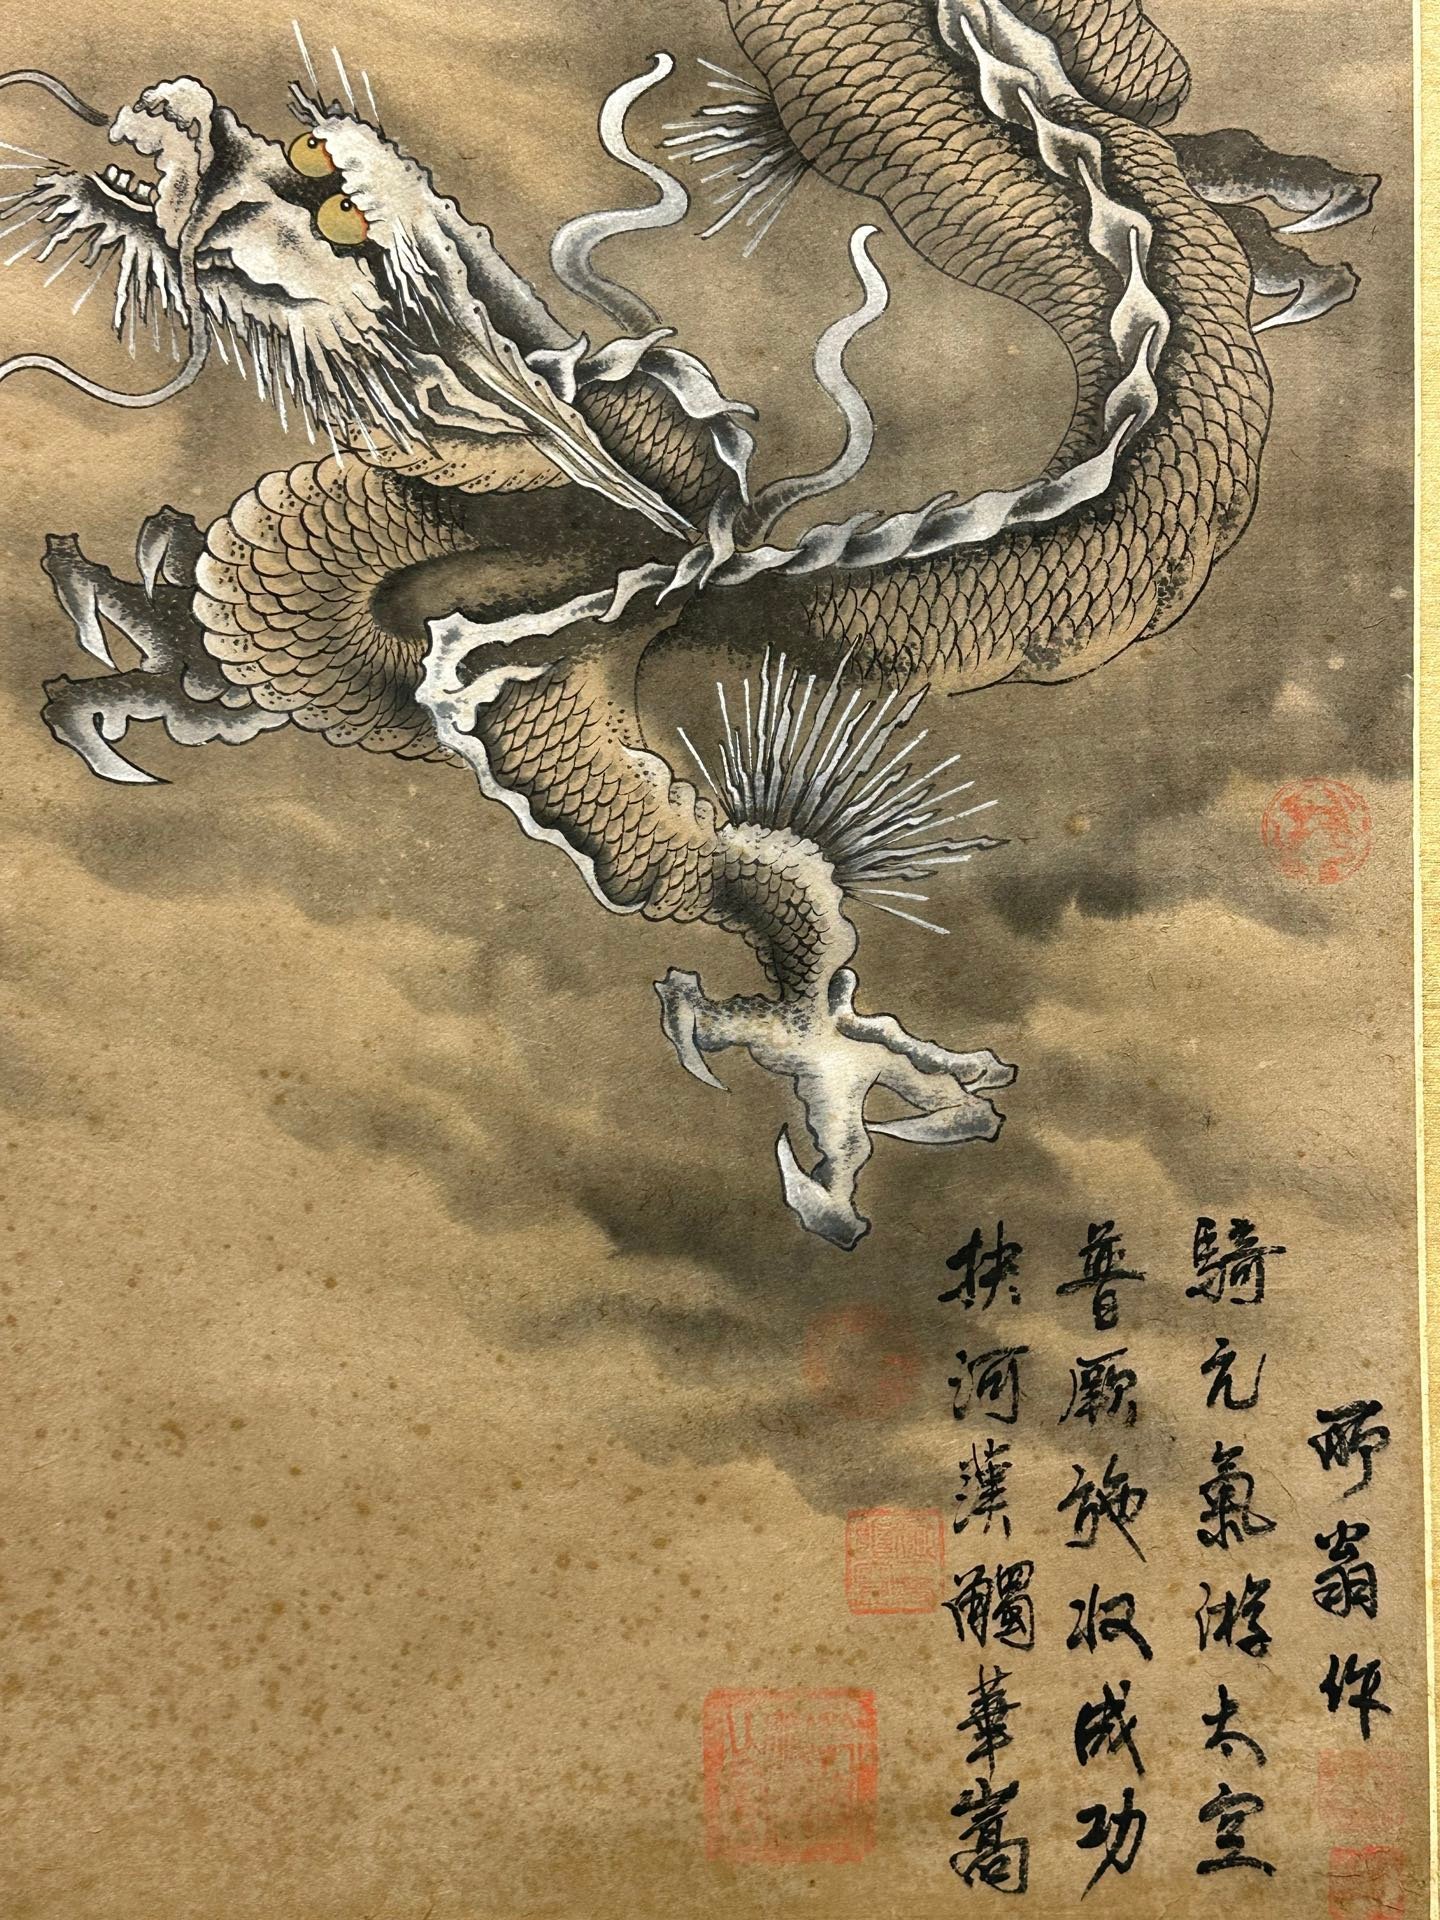 扶河漢觸華嵩
普厥施收成功
騎元氣游太空
所翁作